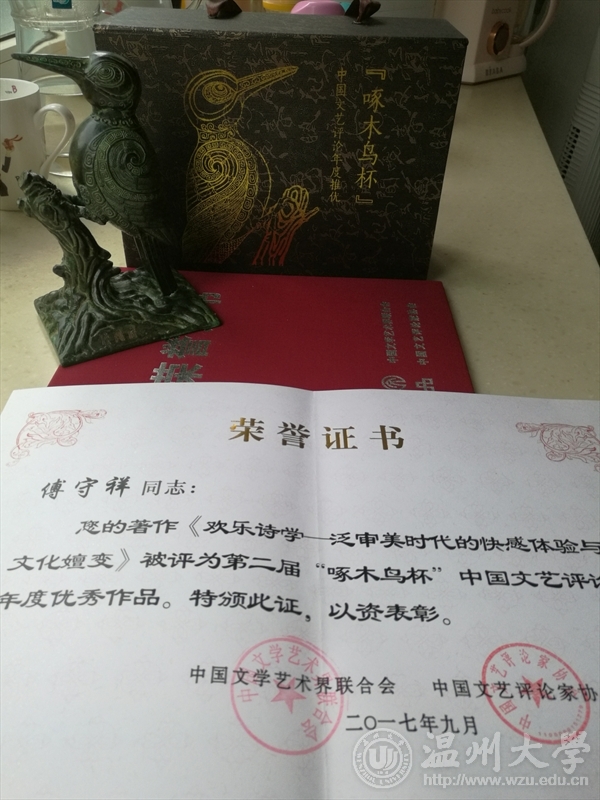 『啄木鸟杯』
中国文艺评论年度推优
中国文学艺术界联合会
中国文艺评论家协会
荣誉证书
傅守祥 同志：
您的著作《欢乐诗学—泛审美时代的快感体验与
文化嬗变》被评为第二届“啄木鸟杯”中国文艺评论
年度优秀作品。特颁此证，以资表彰。
中国文学艺术界联合会 中国文艺评论家协
二〇一七年九月
温州大学
http://www.wzu.edu.cn